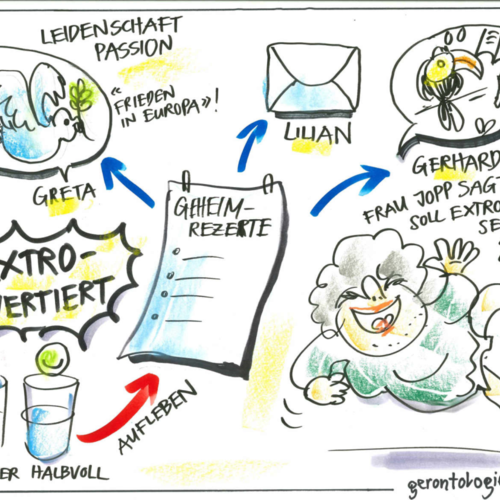 LEIDENSCHAFT
PASSION
«FRIEDEN
IN EUROPA»!
GRETA
LILIAN
GERHARD
FRAU JOPP SAGT
SOLL EXTRO
SE
GEHEIM-
REZEPTE
XTRO-
VERTIERT
AUFLEBEN
ER HALBVOLL
gerontologi